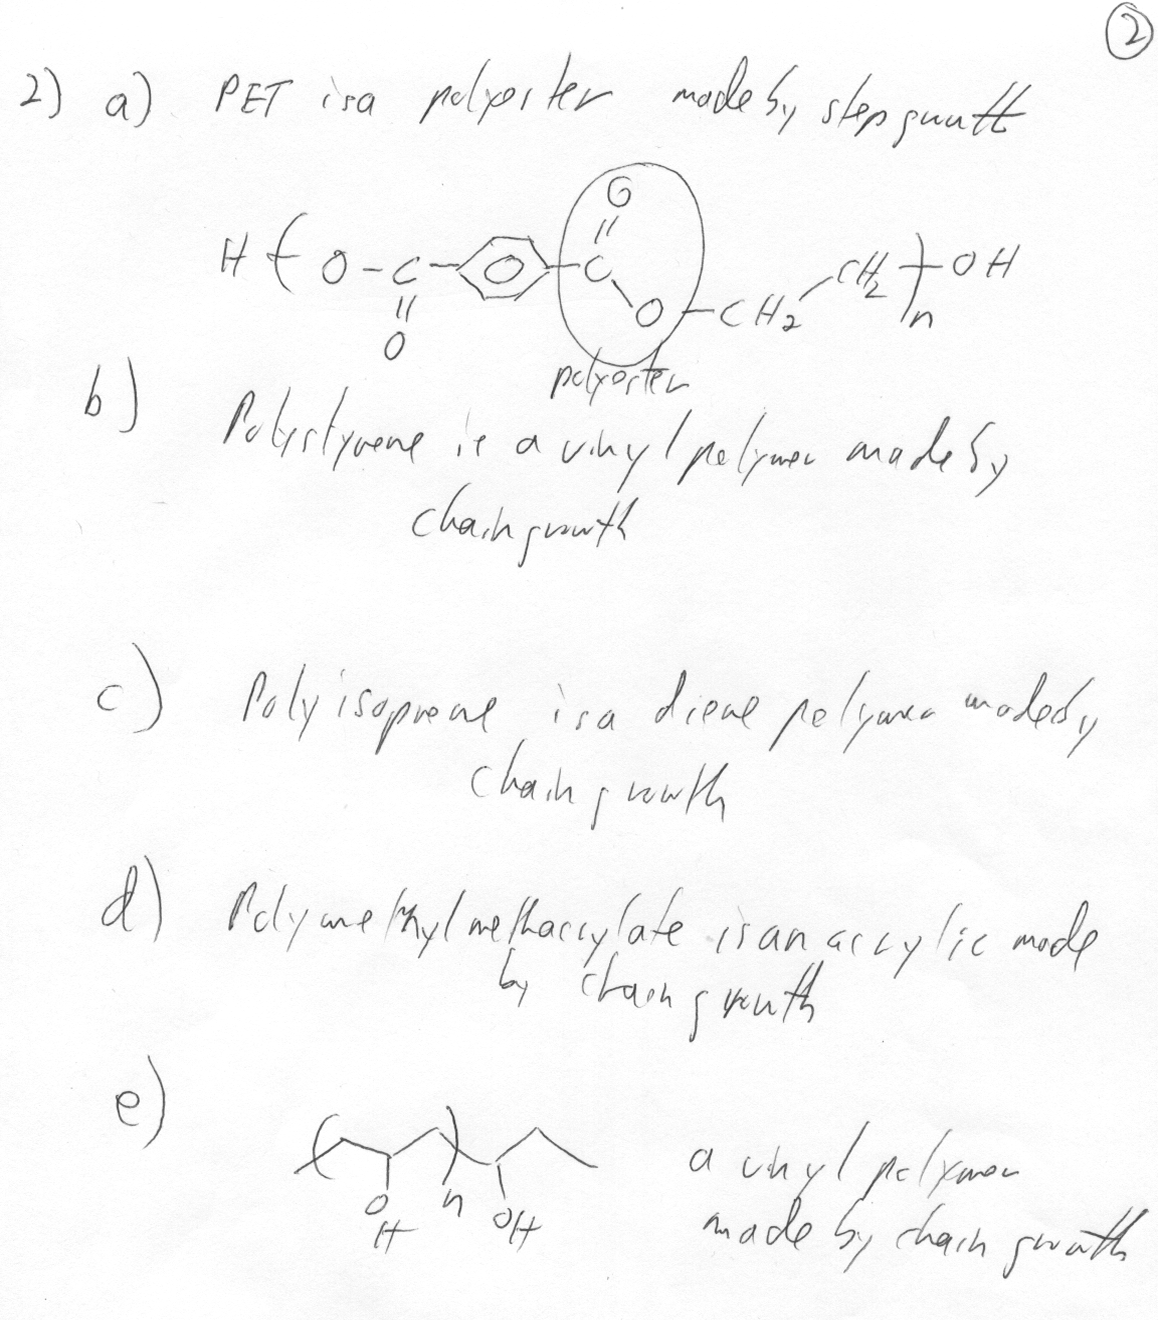 2
2) a) PET is a polyester made by step growth
O
H ( O - C - C ) OH
CH2
O O - CH2 n
polyester
b) Polystyrene is a vinyl polymer made by
chain growth
c) Polyisoprene is a diene polymer made by
chain growth
d) Polymethylmethacrylate is an acrylic made
by chain growth
e) a vinyl polymer
OH n OH
made by chain growth